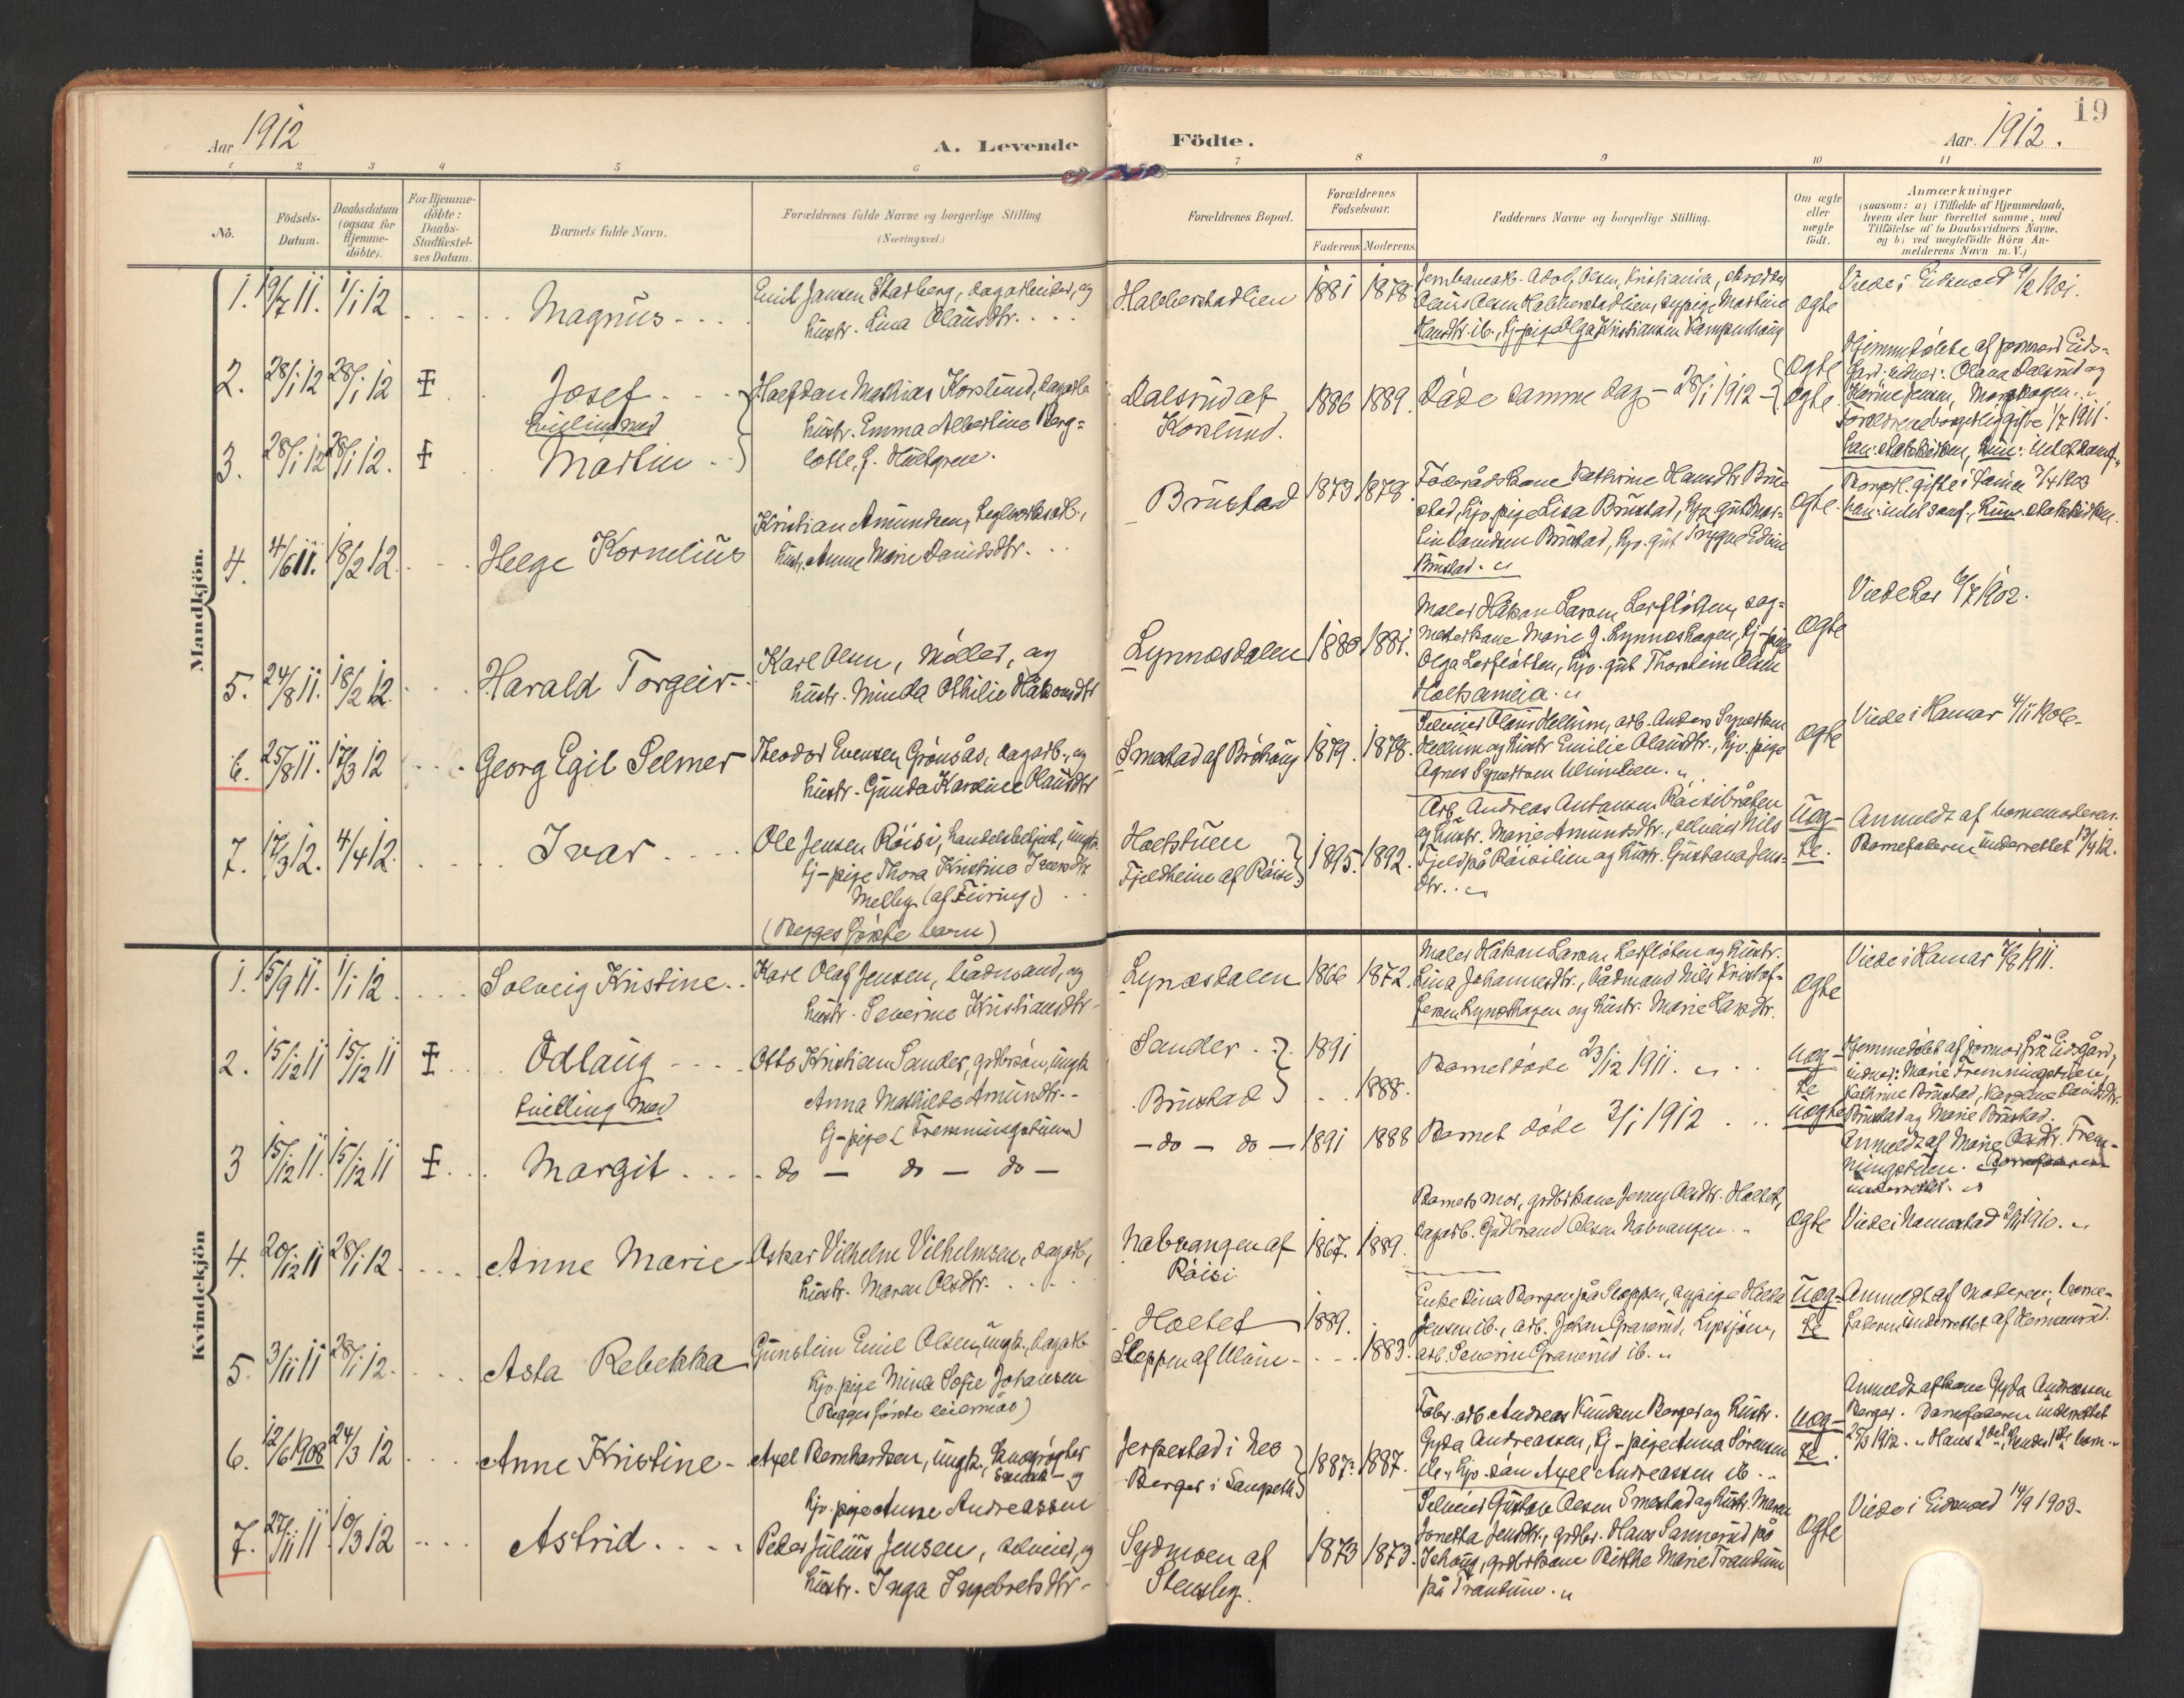 Aar 1912
A. Levende
Födte.
Aar 1912.
19
1 2 3 4 5 6 7 8 9 10 11
No.
Födsels-
Datum.
Daabsdatum
(ogsaa for
Hjemme-
döbte).
For Hjemme-
döbte:
Daabs-
Stadfæstel-
ses Datum.
Barnets fulde Navn.
Forældrenes fulde Navne og borgerlige Stilling
(Næringsvei.)
Forældrenes Bopæl.
Forældrenes
Födselsaar.
Faderens. Moderens.
Faddernes Navne og borgerlige Stilling.
Om ægte
eller
uægte
födt.
Anmærkninger
(saasom: a) i Tilfælde af Hjemmedaab,
hvem der har forrettet samme, med
Tilföielse af to Daabsvidners Navne,
og b) ved uægtefödte Börn An-
melderens Navn m. V.)
Mandkjön.
1. 19/7 11. 1/1 12
Magnus
Emil Jansen Skarberg, dagarbeider, og
hustr. Lina Olausdtr.
Halberstadlien 1881 1878
Olaus Olsen Halberstadlien, sypige Martine
Hansdtr. ib.,
Ægte
Viede i Eidsvold 9/2 1901.
2. 28/1 12 28/1 12
Josef
tvilling med
Halfdan Mathias Korslund, dagarb.
hustr. Emma Albertine Berg-
lotte f. Hultgren.
Dalsrud af
Korslund.
1886 1889.
Döde samme dag - 28/1 1912 -
Ægte
Ægte
Hjemmedöbte af jormor Eids-
gard. vidner: Olava Dalsrud og
Karine Jensen,
Forældrene borgerlig gifte 1/7 1911.
han: statskirken, hun: intet samf.
3. 28/1 12 28/1 12.
Martin
4. 4/6 11. 18/2 12.
Helge Kornelius
Kristian Amundsen, teglverksarb.,
hustr. Anne Marie Davidsdtr.
Brustad 1873 1878.
Föderådskone Kathrine Hansdtr Bru-
stad, hjv. pige Lisa Brustad, hjv. gut Mar-
tin Davidsen Brustad, hjv. gut Trygve Edvin
Brustad.
Ægte.
Borgerl. gifte i 7/4 1903
han: intet samf., hun: statskirken.
5. 24/8 11. 18/2 12.
Harald Torgeir
Karl Olsen, Möller, og
hustr. Minda Othilie Håkonsdtr
Lynnesdalen 1880 1881.
Maler Håkon Larsen Lerflöten, sag-
mesterkone Marie J. Lynneshagen, tj-pige
Olga Lerflöten, hjv. gut Thorstein Olsen
Ægte
Viede her 6/7 1902.
6. 25/8 11. 17/3 12
Georg Egil Selmer
Theodor Evensen Grönsås, dagarb., og
hustr. Gunda Karoline Olausdtr
Smestad af Bröhaug 1879. 1878.
Selveier Olaus Hellum, arb. Anders Syversen
Hellum og hustr Emilie Olausdtr., hjv. pige
Agnes Syversen
Ægte
Viede i Hamar 4/11 1906.
7. 17/3 12. 4/4 12.
Ivar
Ole Jensen Röisi, handelsbetjent, ungk.
tj-pige Thora Kristine Iversdtr
Melby (af Feiring)
(Begges förste barn)
Holtstuen
Fjeldheim af Röisi
1895. 1892.
Arb. Andreas Antonsen Röisibråten
og hustr. Marie Amundsdtr., selveier Nils
Fjeld på Röisilien og hustr. Gustava Jens-
dtr.
Uæg-
te.
Anmeldt af barnemoderen.
Barnefaderen underrettet 13/4 12.
Kvindekjön
1. 15/9 11. 1/1 12.
Solveig Kristine
Karl Olaf Jensen, bådmand, og
hustr. Severine Kristiansdtr
Lynesdalen 1866 1872.
Maler Håkon Larsen Lerflöten og hustr.
Lina Johannesdtr., bådmand Nils Kristof-
fersen Lyneshagen og hustr. Marie Larsdtr.
Ægte
Viede i Hamar 7/8 1911.
2. 15/12 11 15/12 11
Odlaug
tvilling med
Otto Kristian Sander, grdbrsön, ungk
Anna Mathilde Amundtr.
tj-pige (Fremmingstuen)
Sander
Brustad
1891 1888.
Barnet döde 23/12 1911.
Uæg-
te
Hjemmedöbt af jormor frk Eidsgård,
vidner: Marie Fremmingstuen,
Kathrine Brustad, Karoline Davidsdtr.
Brustad og Marie Brustad.
3 15/12 11. 15/12 11
Margit
do - do - do -
- do - do - 1891 1888
Barnet döde 3/1 1912
Uægte
Anmeldt af Marie Olsdtr. Frem-
mingstuen. Barnefaderen
underrettet.
4. 20/12 11 28/1 12.
Anne Marie
Oskar Vilhelm Vilhelmsen, dagarb,
hustr. Maren Olsdtr.
Nabvangen af
Röisi
1867. 1889.
Barnets mor, grdbrkone Jenny Olsdtr. Holtet,
dagarb. Gudbrand Olsen Nabvangen.
Ægte
Viede i Nannestad 1910.
5. 3/11 11 28/1 12.
Asta Rebekka
Gunstein Emil Olsen, ungk., dagarb
hjv. pige Mina Sofie Johansen
(Begges förste leiermål)
Holtet
Sloppen af Ulvin
1889. 1883.
Enke Lina Borgen på Sloppen, sypige Hilda
Jensen ib., arb. Johan Granerud,
arb. Severin Granerud ib.
Uæg-
te
Anmeldt af moderen; barne-
faderen underrettet af
6. 12/6 1908 24/3 12
Anne Kristine
Axel Bernhardsen, ungk.,
hjv. pige Anne Andreassen
Jerpestad i Nes
Berger i
1887. 1887.
Fabr. arb. Andreas Knudsen Berger og hustr.
Gyda Andreassen, tj-pige Anna Sörensen
hjv. sön Axel Andreassen ib.
Uæg-
te.
Anmeldt af kone Gyda Andreassen
Berger. Barnefaderen underrettet
25/3 1912. Hans 2det, hendes 1ste barn.
7. 27/11 11. 10/3 12
Astrid
Peder Julius Jensen, selveier, og
hustr. Inga Ingebretsdtr
Sydmoen af
Stensby.
1873 1873.
Selveier Gustav Olsen Smestad og hustr. Maren
Jonetta Jensdtr., grdbr. Hans Sannerud på
Ishaug, grdbrkone Birthe Marie Trandum
på Trandum.
Ægte
Viede i Eidsvold 14/9 1903.